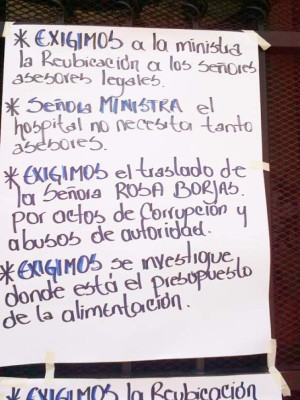 * EXIGIMOS a la ministra
la Reubicación a los señores
asesores legales.
* Señora MINISTRA el
hospital no necesita tanto
asesores.
* EXIGIMOS el traslado de
la señora ROSA BORJAS.
por actos de Corrupción y
abusos de autoridad.
* EXIGIMOS se investigue
donde está el presupuesto
de la alimentación.
* EXIGIMOS la Reubicación